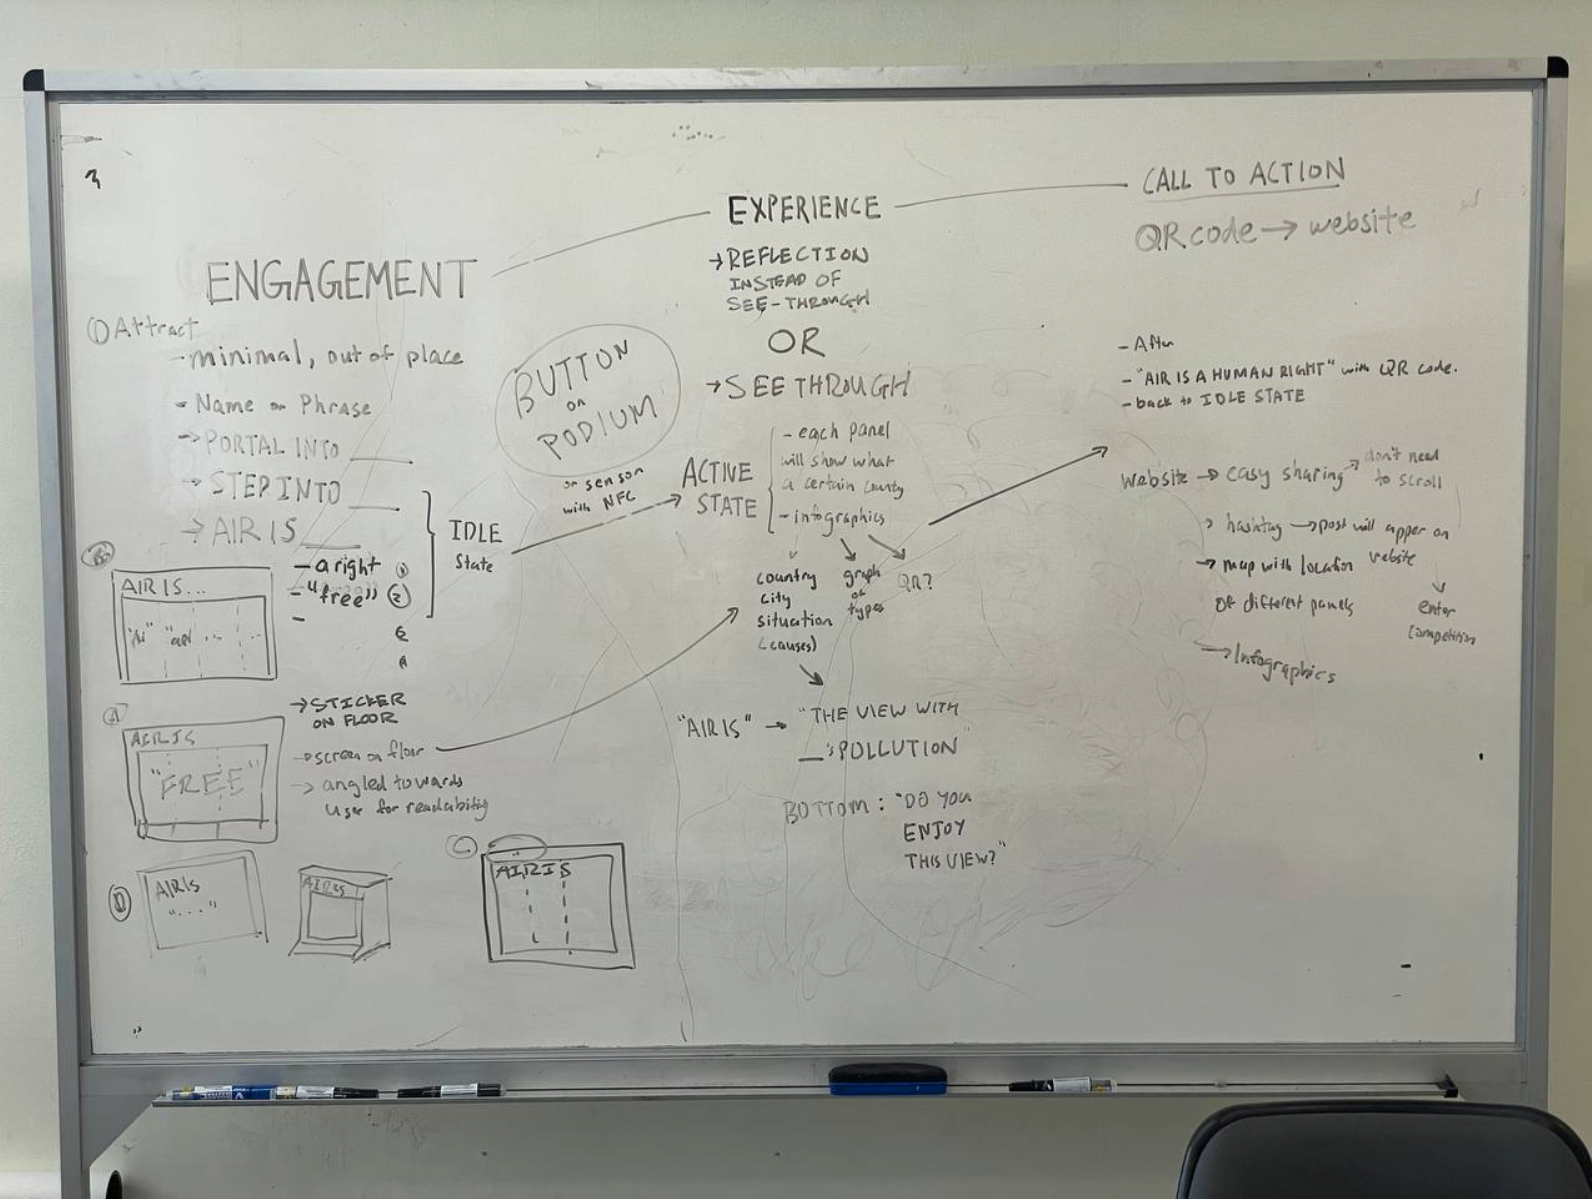 ENGAGEMENT
① Attract
- minimal, out of place
- Name or Phrase
→ PORTAL INTO ___
→ STEP INTO ___
→ AIR IS ___
- a right ①
- "free" ②
-
IDLE
State
B
AIR IS...
A
AIR IS
"FREE"
→ STICKER
ON FLOOR
→ screen on floor
→ angled towards
user for readability
D
AIR IS
"...."
AIR IS
C
AIR IS
BUTTON
on
PODIUM
or sensor
with NFC
EXPERIENCE
→ REFLECTION
INSTEAD OF
SEE-THROUGH
OR
→ SEE THROUGH
ACTIVE
STATE
- each panel
will show what
a certain county
- infographics
country
city
situation
(causes)
graph
of
types
QR?
"AIR IS" → "THE VIEW WITH
__'s POLLUTION"
BOTTOM: "DO YOU
ENJOY
THIS VIEW?"
CALL TO ACTION
QR code → website
- After
- "AIR IS A HUMAN RIGHT" with QR code.
- back to IDLE STATE
website → easy sharing → don't need
to scroll
> hashtag → post will apper on
website
→ map with location
of different panels
enter
competition
→ Infographics